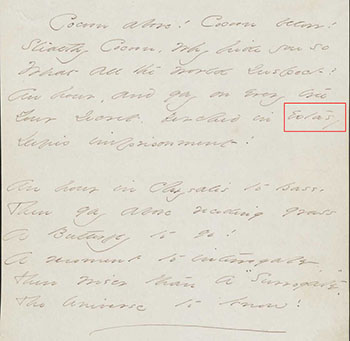 Cocoon above! Cocoon below!
Stealthy Cocoon, Why hide you so
What all the World suspect!
An hour, and gay on every tree
Your Secret, perched in Extasy
Defies imprisonment!
An hour in Chrysalis to pass.
Then gay above receding grass
A Butterfly to go!
A moment to interrogate
Then wiser than a "Surrogate",
The Universe to know!